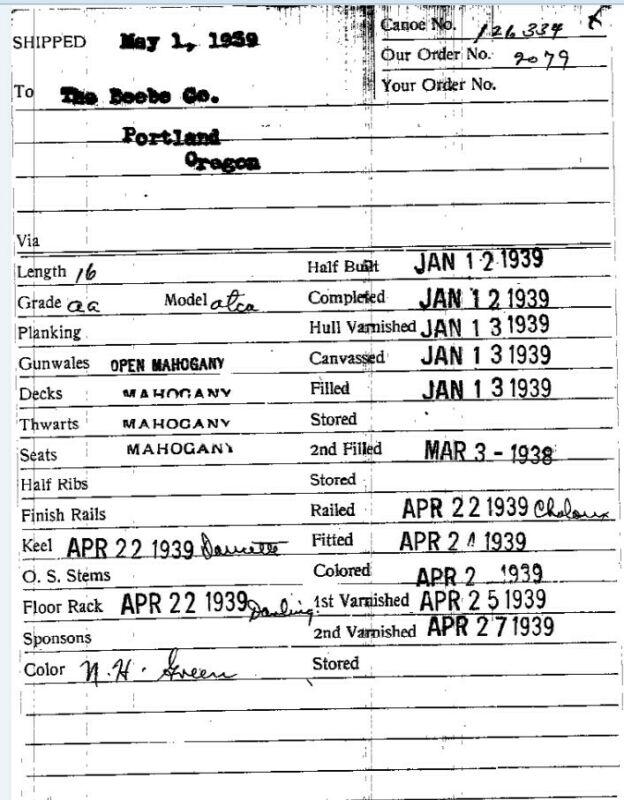 SHIPPED May 1, 1939
Canoe No. 126334
Our Order No. 2079
To The Beebe Co.
Your Order No.
Portland
Oregon
Via
Length 16 Half Built JAN 12 1939
Grade aa Model otca Completed JAN 12 1939
Planking Hull Varnished JAN 13 1939
Gunwales OPEN MAHOGANY Canvassed JAN 13 1939
Decks MAHOGANY Filled JAN 13 1939
Thwarts MAHOGANY Stored
Seats MAHOGANY 2nd Filled MAR 3 - 1938
Half Ribs Stored
Finish Rails Railed APR 22 1939
Keel APR 22 1939 Fitted APR 24 1939
O. S. Stems Colored APR 2 1939
Floor Rack APR 22 1939 Darling 1st Varnished APR 25 1939
Sponsons 2nd Varnished APR 27 1939
Color N.H. Green Stored